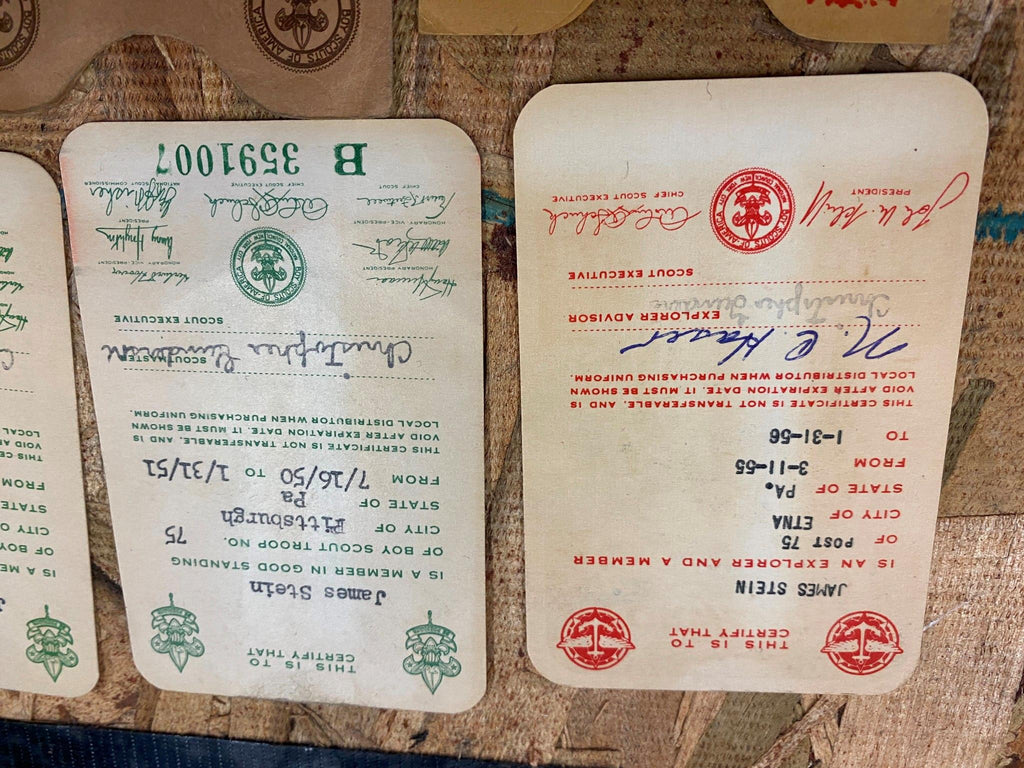 THIS IS TO
CERTIFY THAT
James Stein
IS A MEMBER IN GOOD STANDING
OF BOY SCOUT TROOP NO. 75
CITY OF Pittsburgh
STATE OF Pa
FROM 7/16/50 TO 1/31/51
THIS CERTIFICATE IS NOT TRANSFERABLE, AND IS
VOID AFTER EXPIRATION DATE. IT MUST BE SHOWN
LOCAL DISTRIBUTOR WHEN PURCHASING UNIFORM.
Christopher
SCOUTMASTER
SCOUT EXECUTIVE
BOY SCOUTS OF AMERICA
HONORARY PRESIDENT
HONORARY VICE-PRESIDENT
Herbert Hoover
HONORARY VICE-PRESIDENT
PRESIDENT
CHIEF SCOUT EXECUTIVE
NATIONAL SCOUT COMMISSIONER
CHIEF SCOUT
B 3591007
THIS IS TO
CERTIFY THAT
JAMES STEIN
IS AN EXPLORER AND A MEMBER
OF POST 75
CITY OF ETNA
STATE OF PA.
FROM 3-11-55
TO 1-31-56
THIS CERTIFICATE IS NOT TRANSFERABLE, AND IS
VOID AFTER EXPIRATION DATE. IT MUST BE SHOWN
LOCAL DISTRIBUTOR WHEN PURCHASING UNIFORM.
EXPLORER ADVISOR
Christopher
SCOUT EXECUTIVE
BOY SCOUTS OF AMERICA
PRESIDENT
CHIEF SCOUT EXECUTIVE
THIS CE
VOID AF
LOCAL
FROM
STATE
CITY O
OF BOY
IS A ME
BOY SCOUTS OF AMERICA